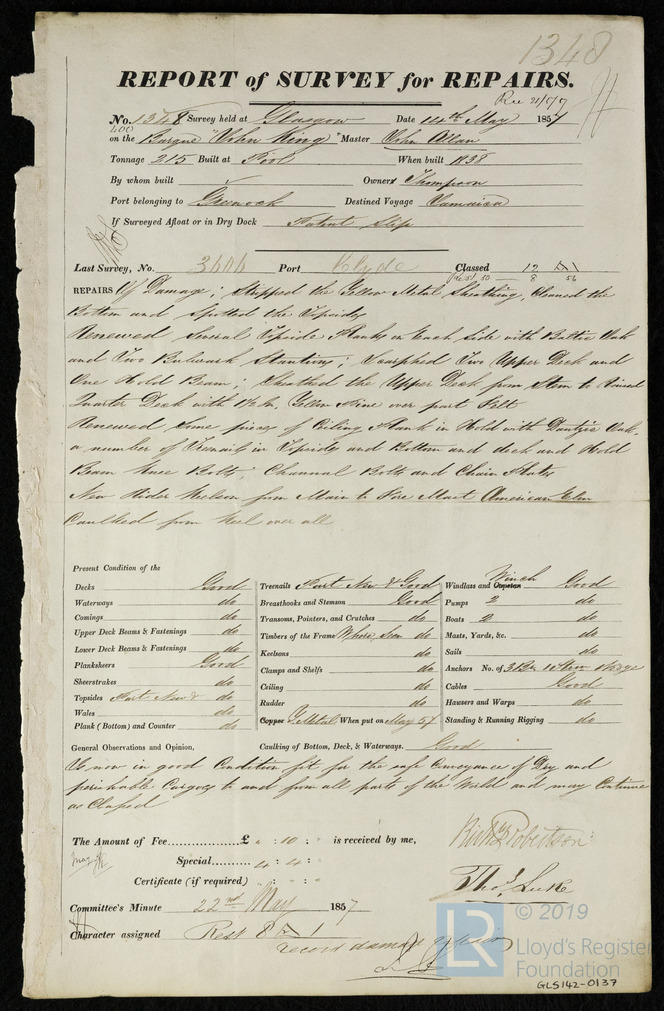 1348
REPORT of SURVEY for REPAIRS.
Rec 21/5/57
No. 1348 Survey held at Glasgow Date 14th May 1857
400
on the Barque "John King" Master John Allan
Tonnage 215 Built at Pool When built 1838
By whom built Owners Thompson
Port belonging to Greenock Destined Voyage Jamaica
If Surveyed Afloat or in Dry Dock Patent Slip
Last Survey, No. Port Clyde Classed 12 A 1
REPAIRS Of Damage; Stripped the Yellow Metal Sheathing, Cleaned the
Bottom and Spotted the Topsides
Renewed Several Topside Planks on Each Side with Baltic Oak
and Two Bulwark Stantions; Scarphed Two Upper Deck and
One Hold Beam; Sheathed the Upper Deck from Stem to Raised
Quarter Deck with 1½ In. Yellow Pine over part Felt
Renewed Some pieces of Ceiling Plank in Hold with Dantzic Oak,
a number of Treenails in Topsides and Bottom and deck and Hold
Beam Knee Bolts, Channel Bolts and Chain Plates
New Rider Keelson from Main to Fore Mast American Elm
Caulked from Keel over all
Present Condition of the
Decks Good
Waterways do
Comings do
Upper Deck Beams & Fastenings do
Lower Deck Beams & Fastenings do
Planksheers Good
Sheerstrakes do
Topsides Part New & do
Wales do
Plank (Bottom) and Counter do
Treenails Part New & Good
Breasthooks and Stemson Good
Transoms, Pointers, and Crutches do
Timbers of the Frame Where Seen do
Keelsons do
Clamps and Shelfs do
Ceiling do
Rudder do
Copper Y Metal When put on May 57
Winch
Windlass and Capstan Good
Pumps 2 do
Boats 2 do
Masts, Yards, &c. do
Sails do
Anchors No. of 3 Br 1 Strm
Cables Good
Hawsers and Warps do
Standing & Running Rigging do
General Observations and Opinion, Caulking of Bottom, Deck, & Waterways. Good
Is now in good Condition fit for the safe Conveyance of Dry and
perishable Cargoes to and from all parts of the World and may Continue
as Classed
The Amount of Fee £ " : 10 : " is received by me,
Special 4 : 4 :
Certificate (if required)
Richd Robertson
Thos. Luke
Committee's Minute 22nd May 1857
Character assigned Rest 8 A 1
record damage repairs
LR
© 2019
Lloyd's Register
Foundation
GLS142-0137